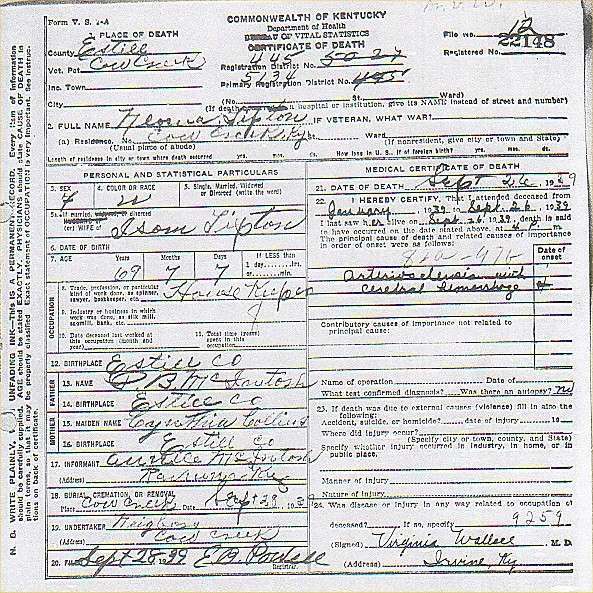 Form V. S. 1-A
COMMONWEALTH OF KENTUCKY
Department of Health
BUREAU OF VITAL STATISTICS
CERTIFICATE OF DEATH
File No. 12
22148
Registered No.
1. PLACE OF DEATH
County Estill
Vot. Pct. Cow Creek
Inc. Town
City
Registration District No. 445 5027
Primary Registration District No. 5134 445
(No. St. Ward)
(If death occurred in a hospital or institution, give its NAME instead of street and number)
2. FULL NAME Tipton IF VETERAN, WHAT WAR?
(a) Residence. No. Cow Creek Ky St. Ward
(Usual place of abode) (If nonresident, give city or town and State)
Length of residence in city or town where death occurred yrs. mos. ds. How long in U. S., if of foreign birth? yrs. mos. ds.
PERSONAL AND STATISTICAL PARTICULARS
3. SEX
4. COLOR OR RACE
5. Single, Married, Widowed or Divorced (write the word)
F W
5a. If married, widowed, or divorced
(or) WIFE of Isom Tipton
6. DATE OF BIRTH
7. AGE Years Months Days IF LESS than
69 7 7
1 day hrs.
or min.
OCCUPATION
8. Trade, profession, or particular kind of work done, as spinner, sawyer, bookkeeper, etc. House Kuper
9. Industry or business in which work was done, as silk mill, sawmill, bank, etc.
10. Date deceased last worked at this occupation (month and year)
11. Total time (years) spent in this occupation
12. BIRTHPLACE Estill Co
FATHER
13. NAME B McIntosh
14. BIRTHPLACE Estill Co
MOTHER
15. MAIDEN NAME Cynthia Collins
16. BIRTHPLACE Estill Co
17. INFORMANT McIntosh
(Address) Ravenna Ky
18. BURIAL, CREMATION, OR REMOVAL
Place Cow Creek Date Sept 29 1939
19. UNDERTAKER
(Address) Cow Creek
20. FILED Sept 28 1939 Powell
Registrar.
MEDICAL CERTIFICATE OF DEATH
21. DATE OF DEATH Sept 26 1939
22. I HEREBY CERTIFY, That I attended deceased from
January 1939 to Sept 26 1939
I last saw h alive on Sept. 26, 1939, death is said
to have occurred on the date stated above, at 4 P. m.
The principal cause of death and related causes of importance
in order of onset were as follows:
Date of onset
arteriosclerosis with
cerebral hemorrhage
Contributory causes of importance not related to
principal cause:
Name of operation Date of
What test confirmed diagnosis? Was there an autopsy? No
23. If death was due to external causes (violence) fill in also the
following:
Accident, suicide, or homicide? date of injury 19
Where did injury occur?
(Specify city or town, county, and State)
Specify whether injury occurred in industry, in home, or in
public place.
Manner of injury
Nature of injury
24. Was disease or injury in any way related to occupation of
deceased? If so, specify 9259
(Signed) Virginia Wallace M. D.
(Address) Irvine, Ky.
N. B. WRITE PLAINLY, UNFADING INK—THIS IS A PERMANENT RECORD. Every item of information
should be carefully supplied. AGE should be stated EXACTLY. PHYSICIANS should state CAUSE OF DEATH in
plain terms, so that it may be properly classified. Exact statement of OCCUPATION is very important. See instruc-
tions on back of certificate.